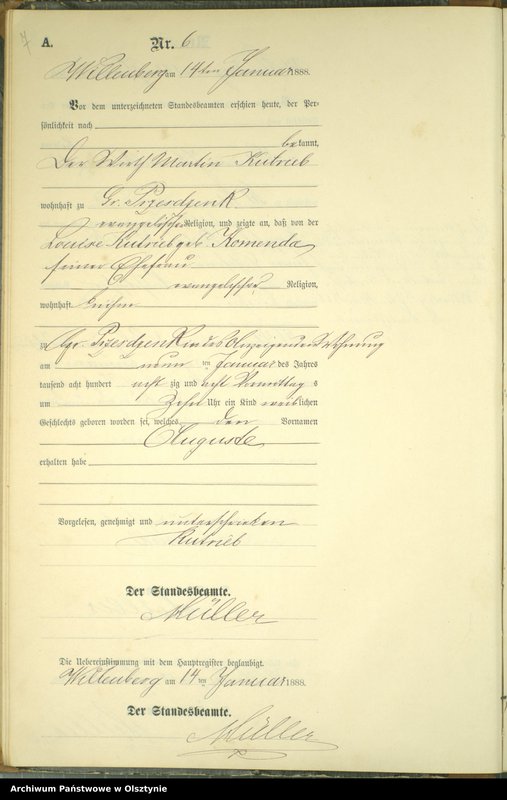 7
A.
Nr. 6
Willenberg am 14ten Januar 1888.
Vor dem unterzeichneten Standesbeamten erschien heute, der Per-
sönlichkeit nach
bekannt,
Der Wirth Martin Kutrieb
wohnhaft zu Gr. Przesdzenk
evangelischer Religion, und zeigte an, daß von der
Louise Kutrieb geb. Komenda
seiner Ehefrau
evangelischer Religion,
wohnhaft bei ihm
zu Gr. Przesdzenk in des Anzeigenden Wohnung
am neun ten Januar des Jahres
tausend acht hundert acht zig und acht Vormittag s
um Zehn Uhr ein Kind weiblichen
Geschlechts geboren worden sei, welches den Vornamen
Auguste
erhalten habe
Vorgelesen, genehmigt und unterschrieben
Kutrieb
Der Standesbeamte.
Müller
Die Uebereinstimmung mit dem Hauptregister beglaubigt.
Willenberg am 14 ten Januar 1888.
Der Standesbeamte.
Müller
Archiwum Państwowe w Olsztynie